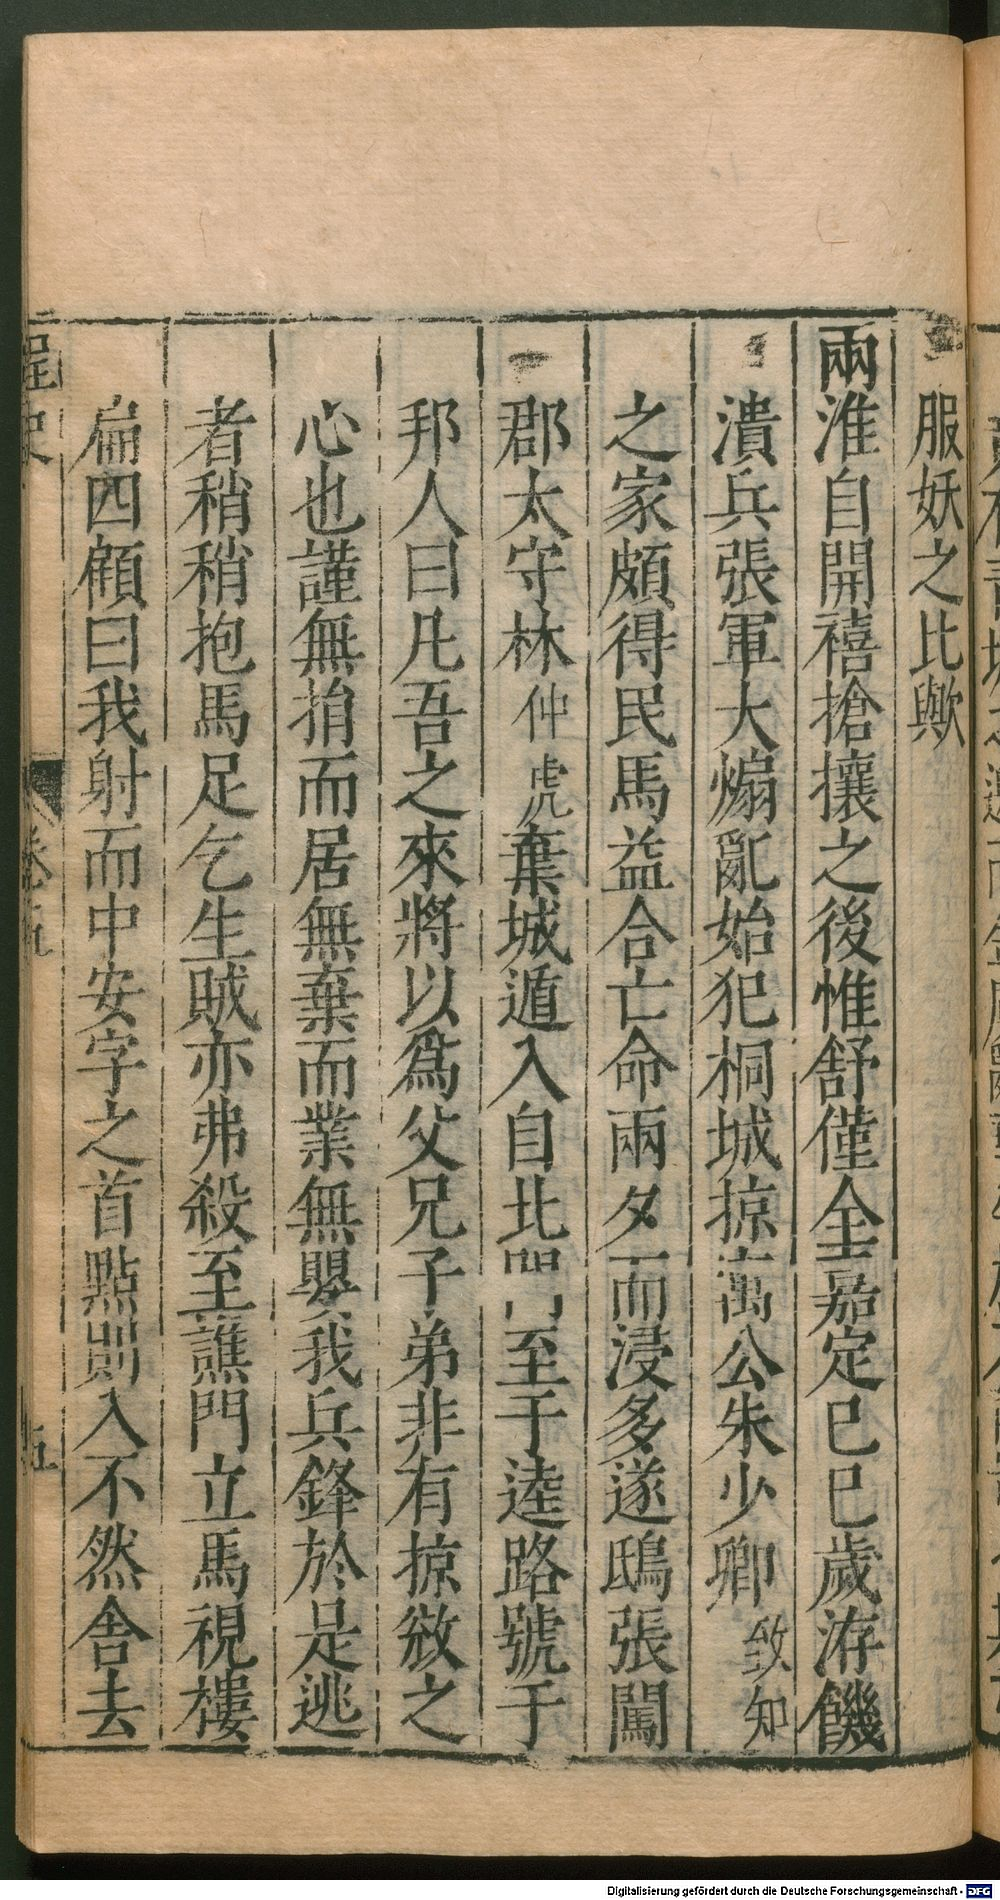 服妖之比歟
兩淮自開禧搶攘之後惟舒僅全嘉定己巳歲洊饑
潰兵張軍大煽亂始犯桐城掠萬公朱少卿致知
之家頗得民馬益合亡命兩夕而浸多遂鴟張闖
郡太守林仲虎棄城遁入自北門至于逵路號于
邦人曰凡吾之來將以爲父兄子弟非有掠敓之
心也謹無捐而居無棄而業無嬰我兵鋒於是逃
者稍稍抱馬足乞生賊亦弗殺至譙門立馬視樓
扁四顧曰我射而中安字之首點則入不然舍去
桯史
卷五
五
Digitalisierung gefördert durch die Deutsche Forschungsgemeinschaft - DFG